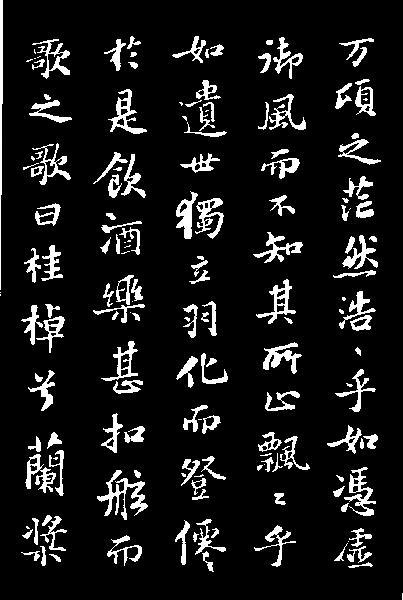 万頃之茫然浩〻乎如馮虛
御風而不知其所止飄〻乎
如遺世獨立羽化而登僊
於是飲酒樂甚扣舷而
歌之歌曰桂棹兮蘭槳